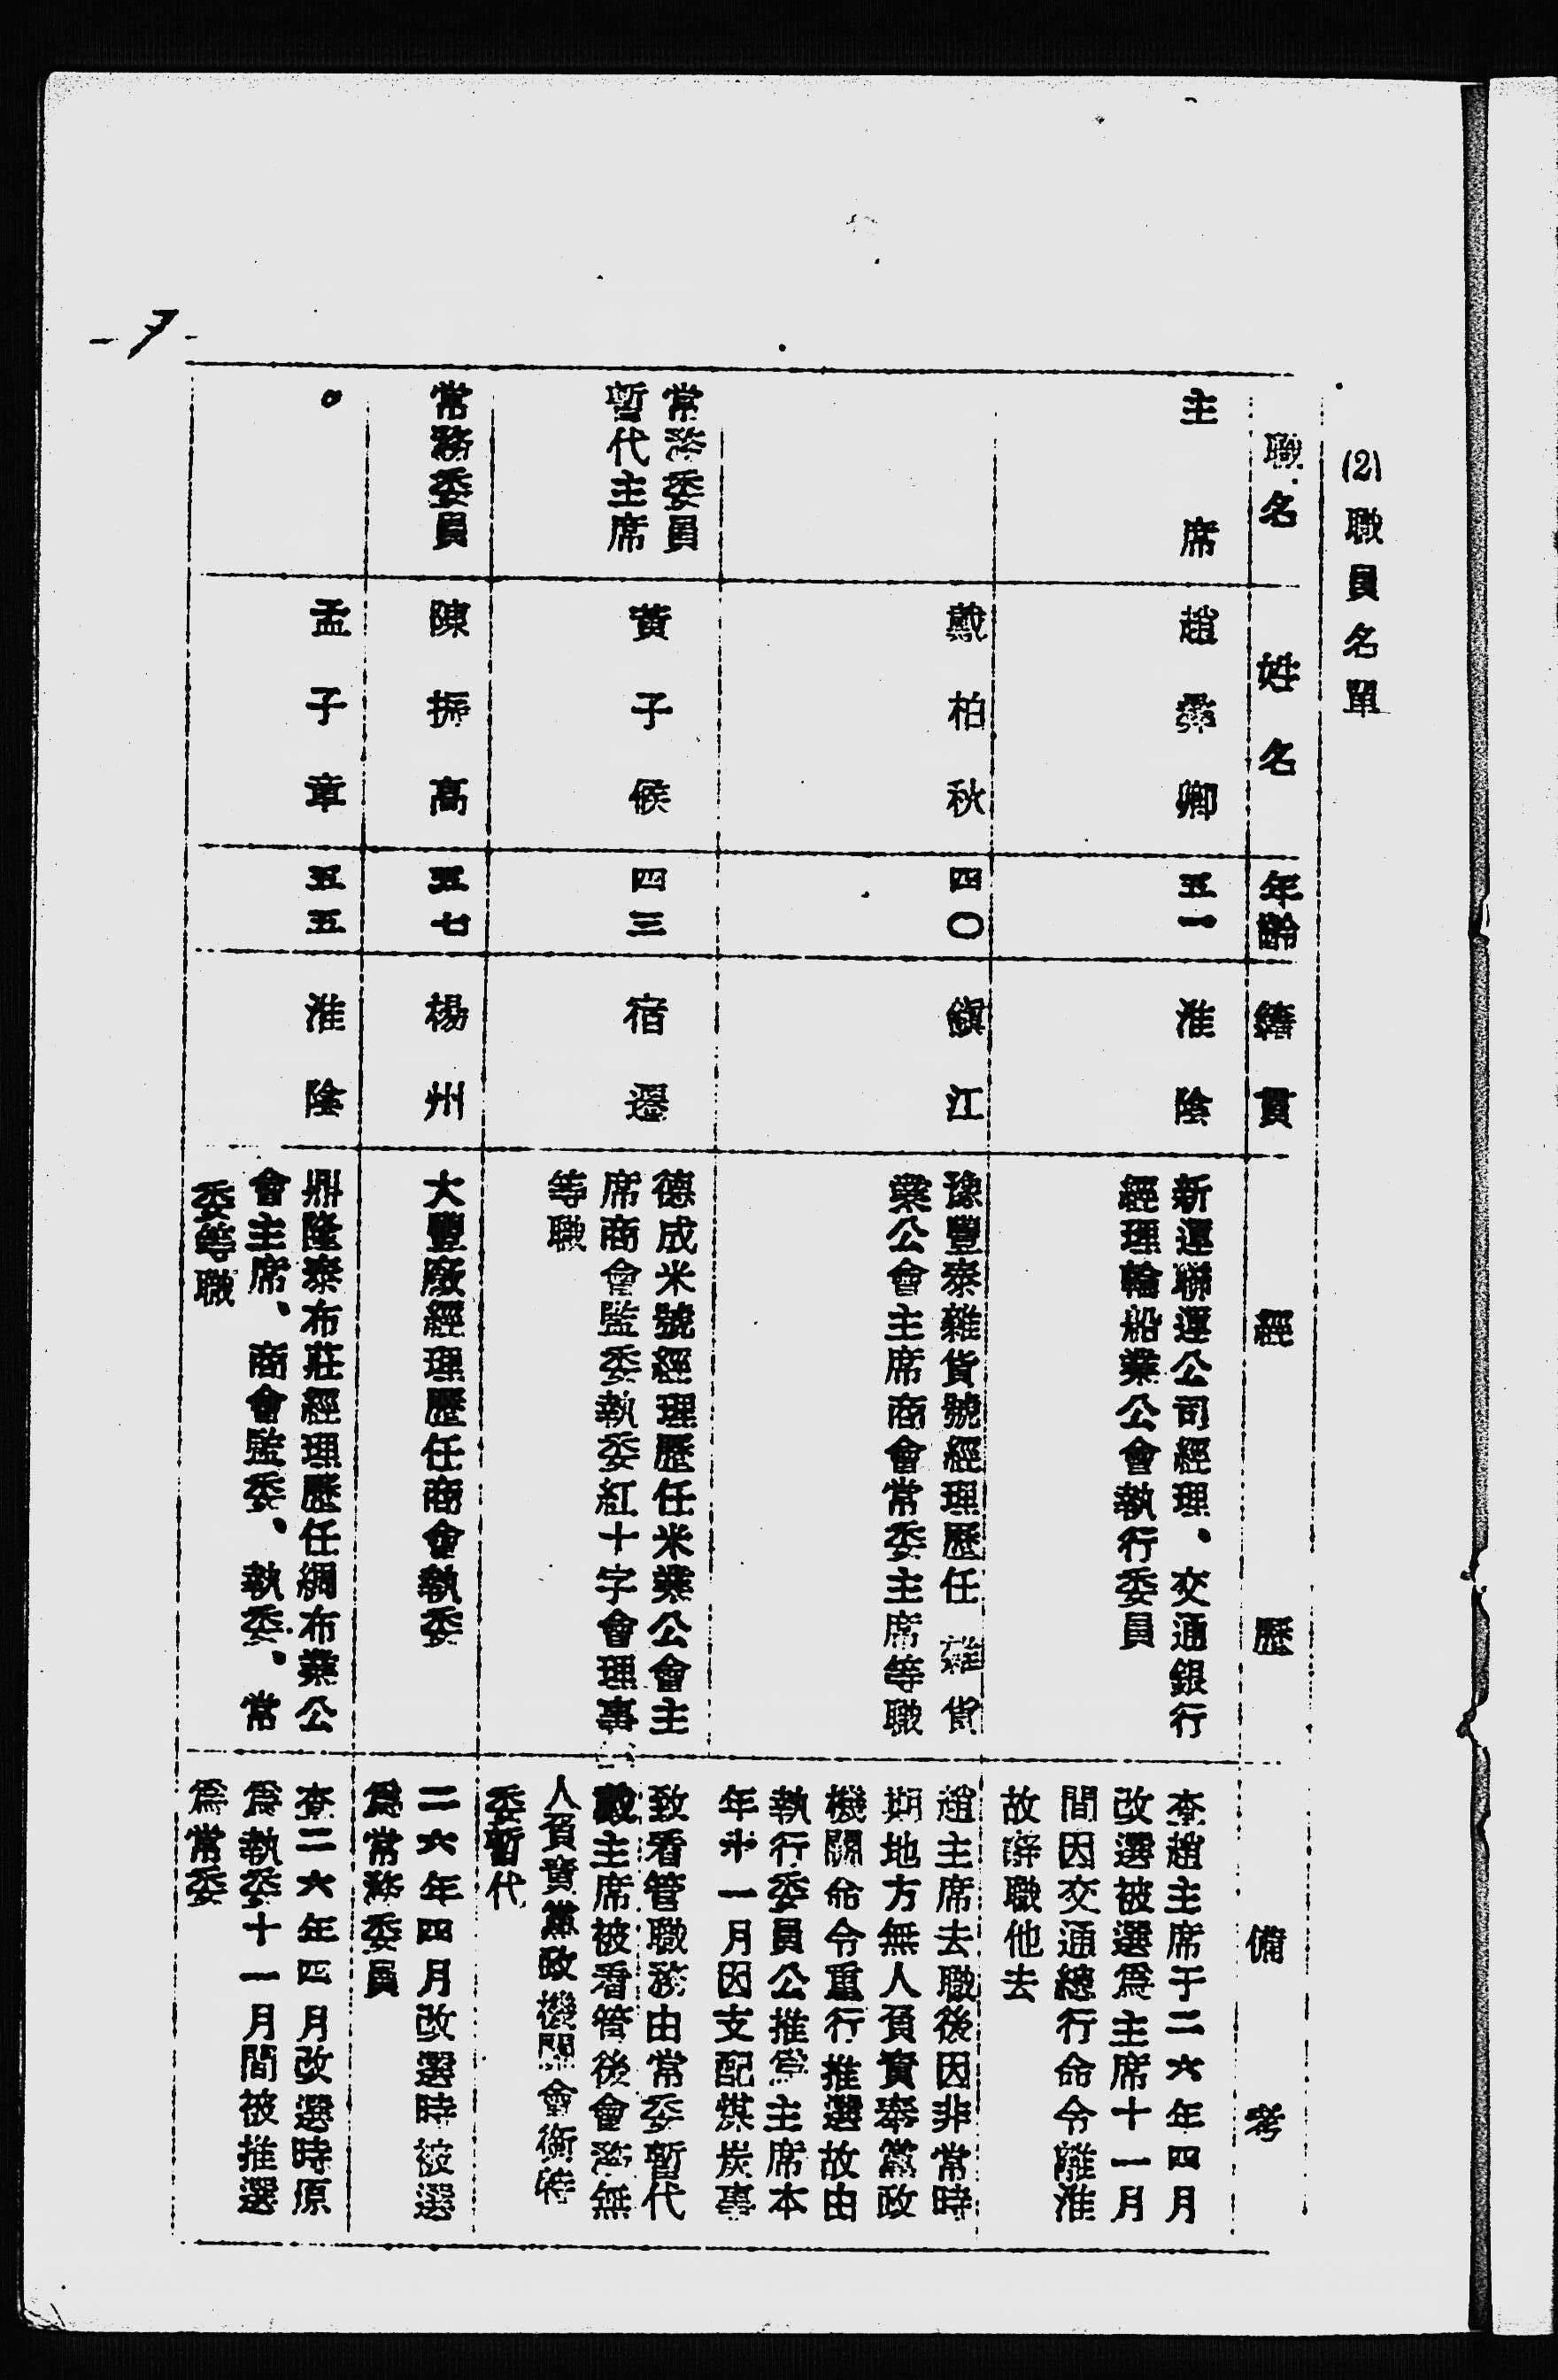 (2)職員名單
職名 姓名 年齡 籍貫 經歷 備考
主席
趙彝卿
五一
淮陰
新運聯運公司經理、交通銀行
經理輪船業公會執行委員
查趙主席于二六年四月
改選被選爲主席十一月
間因交通總行命令離淮
故辭職他去
戴柏秋
四〇
鎭江
豫豐泰雜貨號經理歷任雜貨
業公會主席商會常委主席等職
趙主席去職後因非常時
期地方無人負責奉黨政
機關命令重行推選故由
執行委員公推爲主席本
年十一月因支配煤炭事
常務委員
暫代主席
黃子候
四三
宿遷
德成米號經理歷任米業公會主
席商會監委執委紅十字會理事
等職
致看管職務由常委暫代
戴主席被看管後會務無
人負責黨政機關會銜
委暫代
常務委員
陳振高
五七
楊州
大豐廠經理歷任商會執委
二六年四月改選時被選
爲常務委員
〃
孟子章
五五
淮陰
鼎隆泰布莊經理歷任綢布業公
會主席、商會監委、執委、常
委等職
查二六年四月改選時原
爲執委十一月間被推選
爲常委
-7-